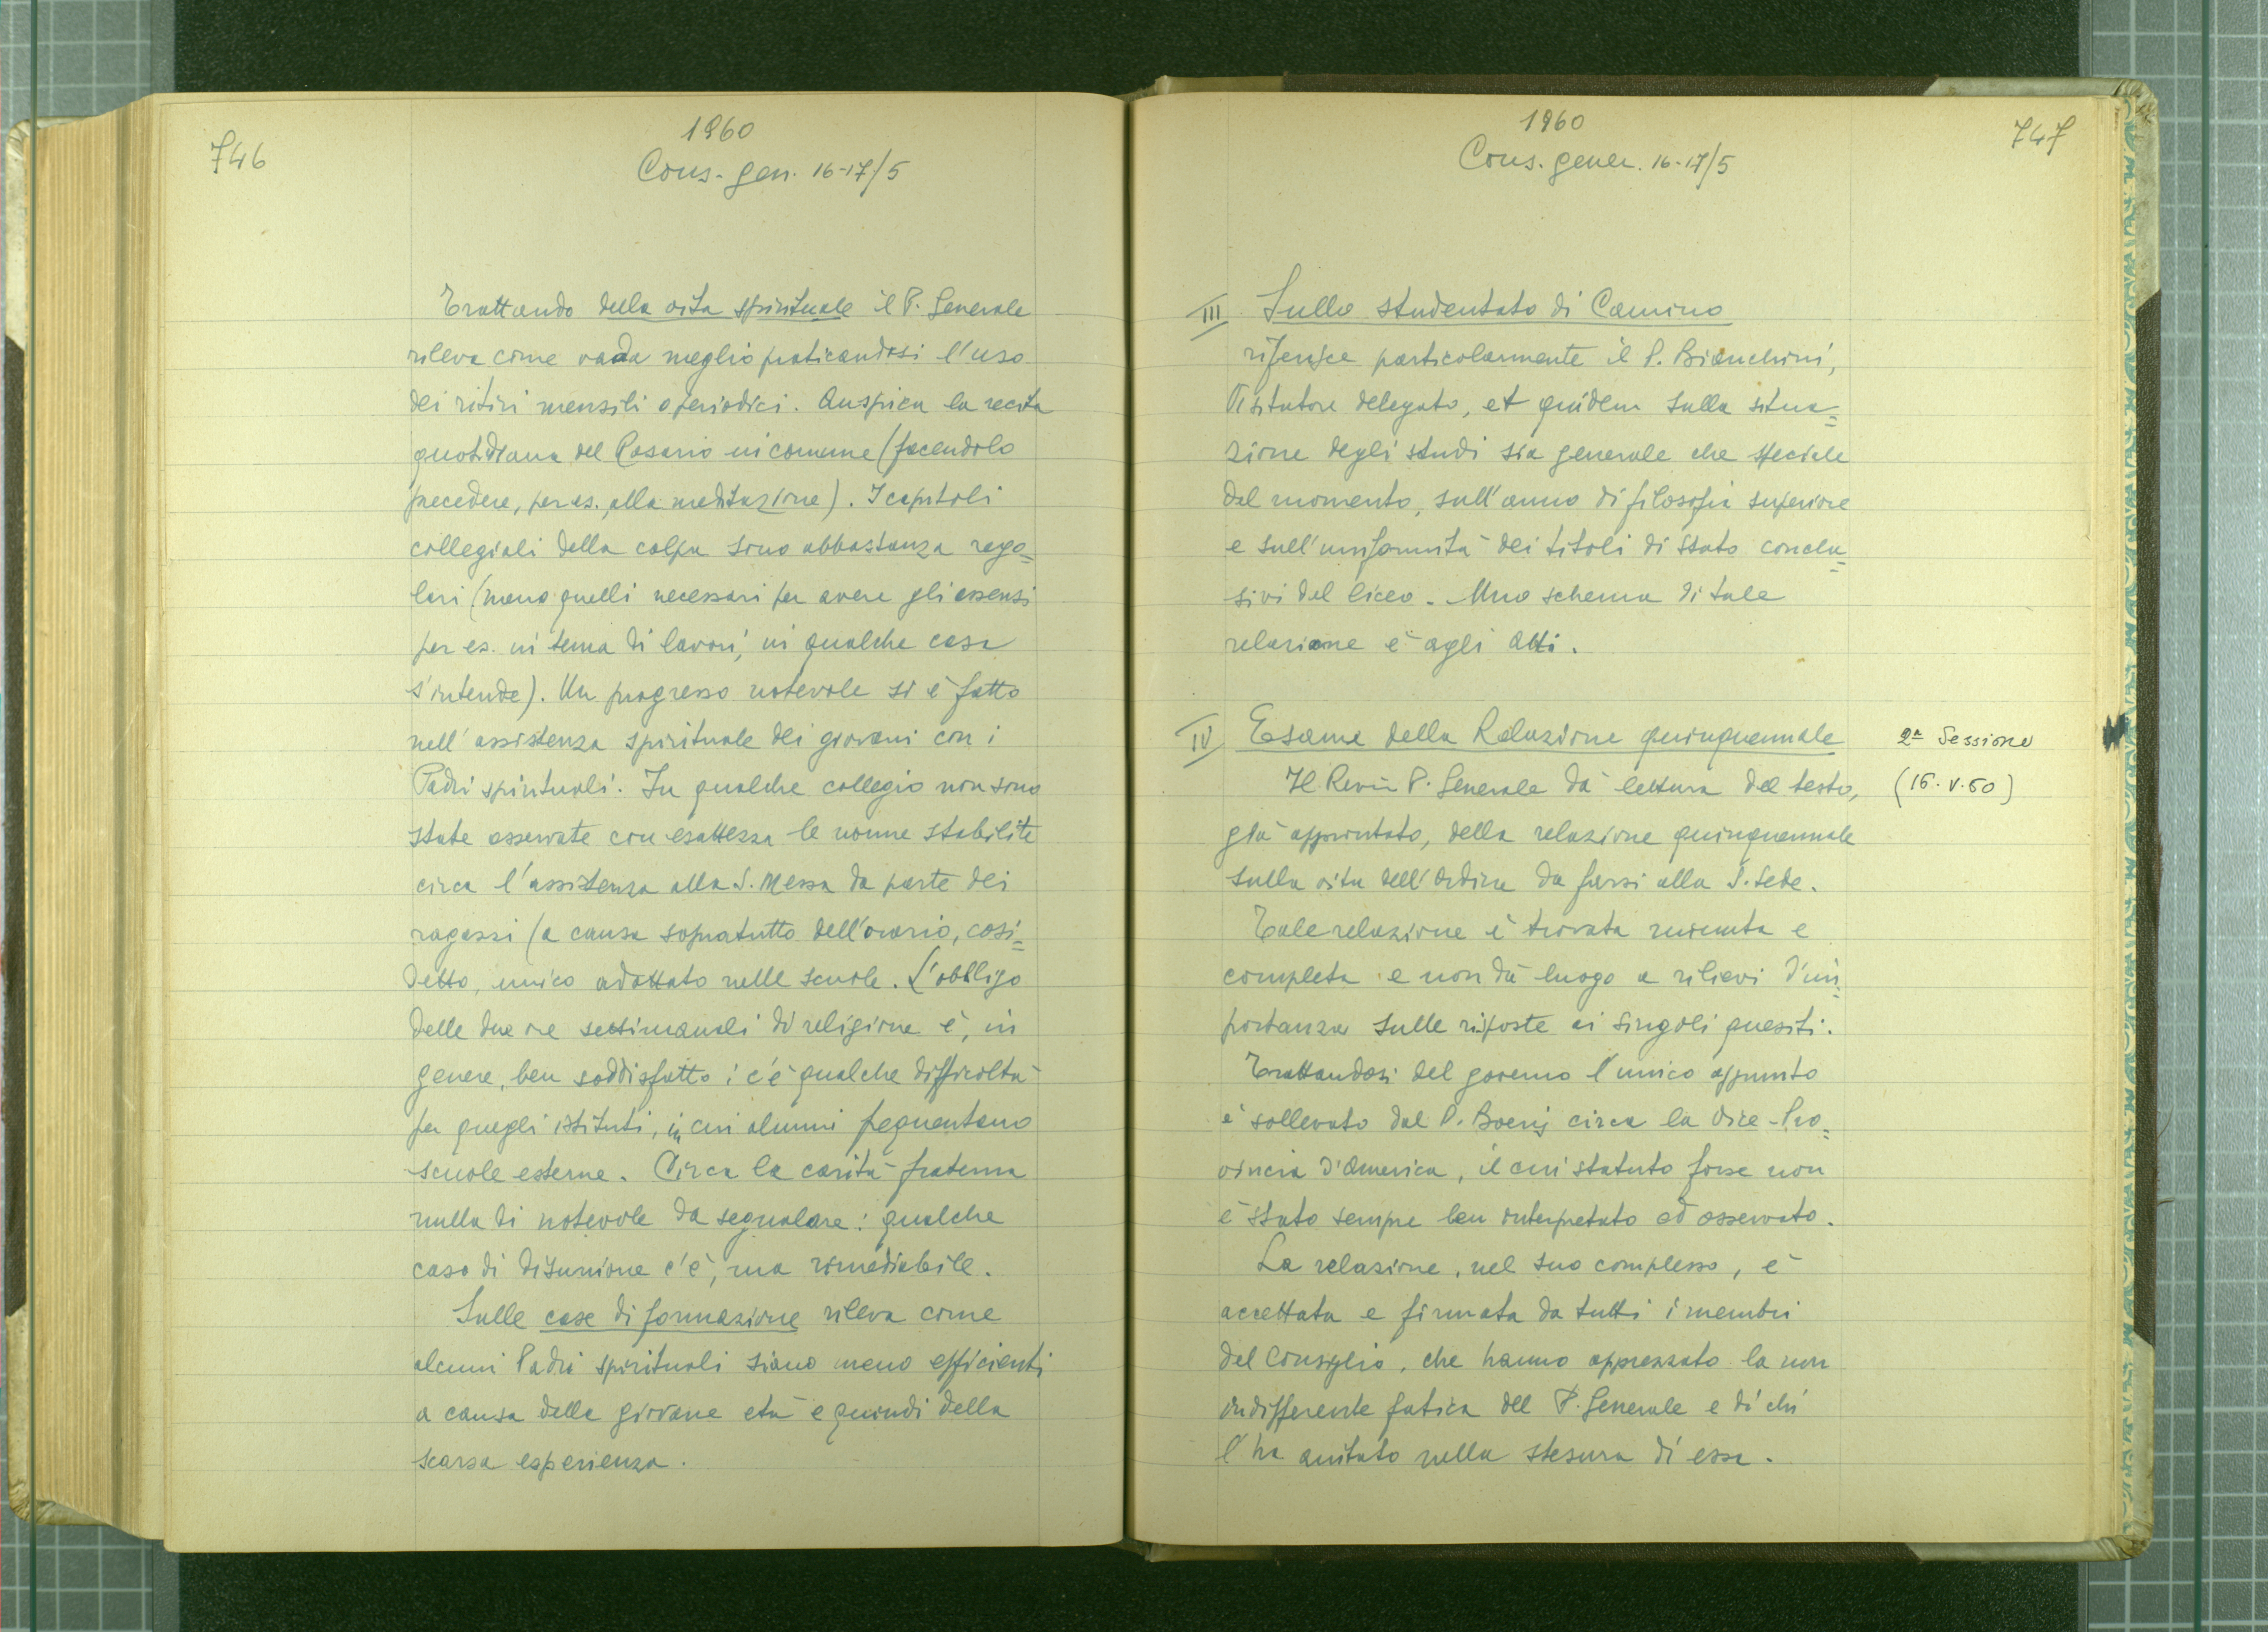 746
1960
Cons. gen. 16-17/5
Trattando della vita spirituale il P. Generale
rileva come vada meglio praticandosi l'uso
dei ritiri mensili o periodici. Auspica la recita
quotidiana del Rosario in comune (facendolo
precedere, per es., alla meditazione). I capitoli
collegiali della colpa sono abbastanza rego=
lari (meno quelli necessari per avere gli assensi
per es. in tema di lavori, in qualche casa
s'intende). Un progresso notevole si è fatto
nell'assistenza spirituale dei giovani con i
Padri spirituali. In qualche collegio non sono
state osservate con esattezza le norme stabilite
circa l'assistenza alla S. Messa da parte dei
ragazzi (a causa sopratutto dell'orario, cosi=
detto, unico adottato nelle scuole. L'obbligo
delle due ore settimanali di religione è, in
genere, ben soddisfatto: c'è qualche difficoltà
per quegli istituti, in cui alunni frequentano
scuole esterne. Circa la carità fraterna
nulla di notevole da segnalare: qualche
caso di disunione c'è, ma rimediabile.
Sulle case di formazione rileva come
alcuni Padri spirituali siano meno efficienti
a causa della giovane età e quindi della
scarsa esperienza.
747
1960
Cons. gener. 16-17/5
III Sullo studentato di Camino
riferisce particolarmente il P. Bianchini,
Visitatore delegato, et quidem sulla situa=
zione degli studi sia generale che speciale
del momento, sull'anno di filosofia superiore
e sull'uniformità dei titoli di Stato conclu=
sivi del liceo. Uno schema di tale
relazione è agli atti.
IV Esame della Relazione quinquennale
2ª Sessione
(16.V.60)
Il Rev.mo P. Generale dà lettura del testo,
già approntato, della relazione quinquennale
sulla vita dell'Ordine da farsi alla S. Sede.
Tale relazione è trovata minuta e
completa e non dà luogo a rilievi d'im=
portanza sulle risposte ai singoli quesiti.
Trattandosi del governo l'unico appunto
è sollevato dal P. Boerij circa la Vice-Pro=
vincia d'America, il cui statuto forse non
è stato sempre ben interpretato ed osservato.
La relazione, nel suo complesso, è
accettata e firmata da tutti i membri
del Consiglio, che hanno apprezzato la non
indifferente fatica del P. Generale e di chi
l'ha aiutato nella stesura di essa.